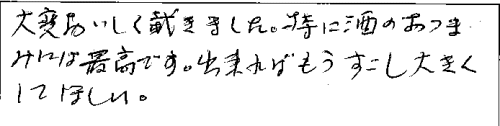 大変おいしく戴きました。特に酒のおつま
みには最高です。出来ればもうすこし大きく
してほしい。